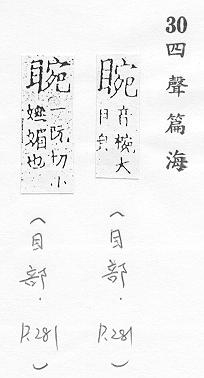 30 四聲篇海
睕
音椀大
目皃
(目部．P.281)
睕
一阮切小
嫵媚也
(目部．P.281)